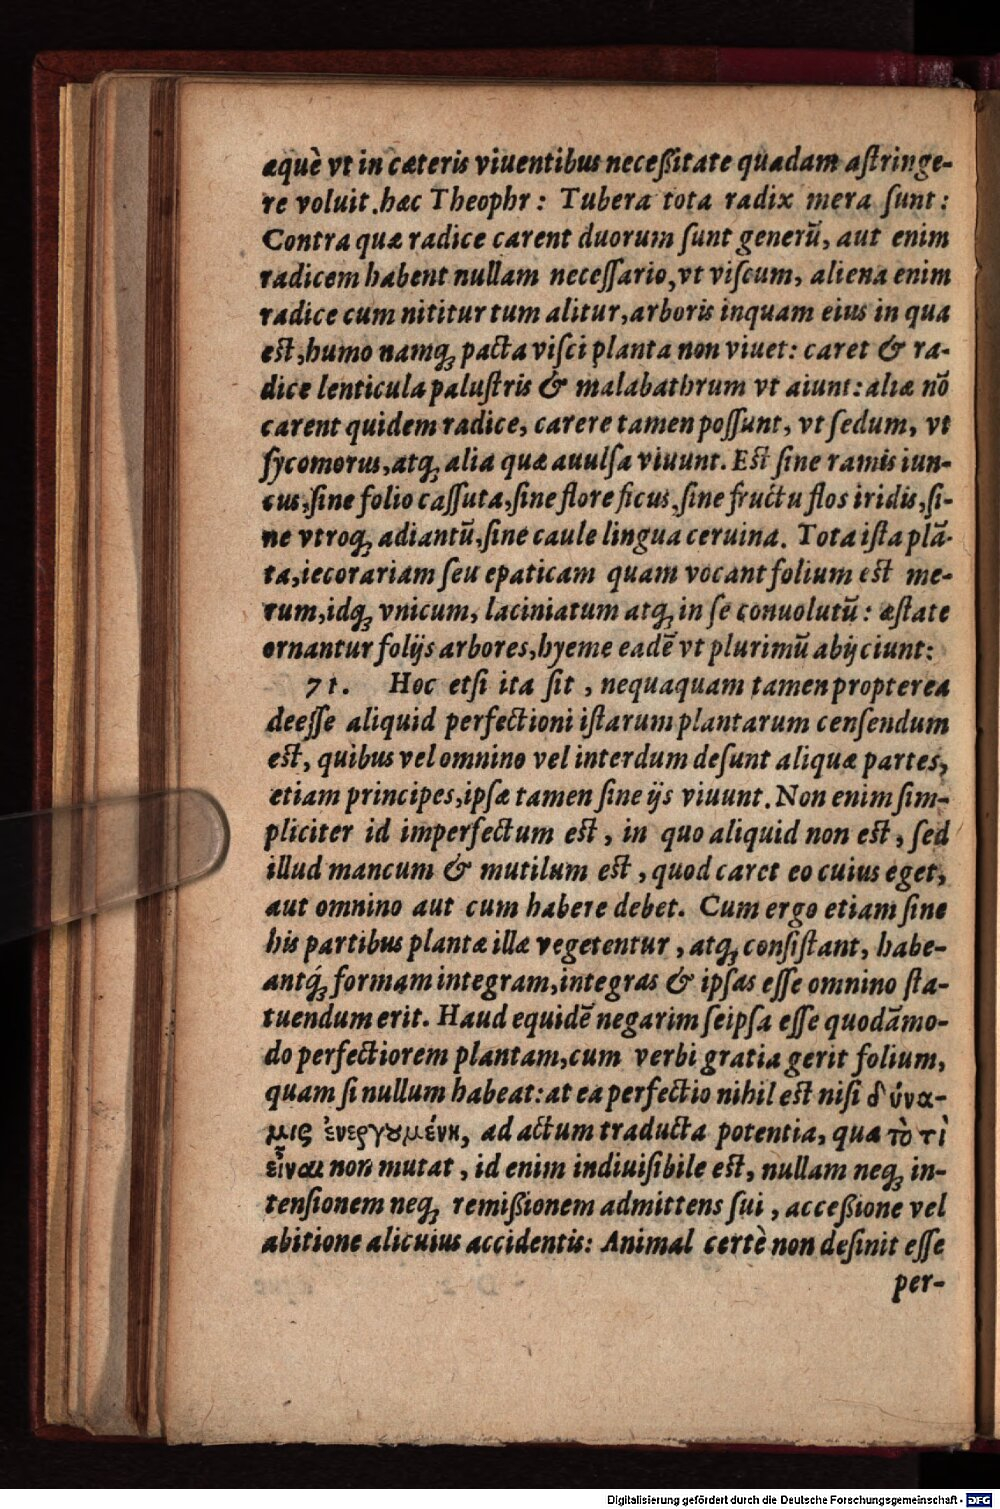 æquè vt in cæteris viuentibus neceßitate quadam aſtringe-
re voluit. hæc Theophr: Tubera tota radix mera ſunt:
Contra quæ radice carent duorum ſunt generũ, aut enim
radicem habent nullam neceſſario, vt viſcum, aliena enim
radice cum nititur tum alitur, arboris inquam eius in qua
est, humo namq́; pacta viſci planta non viuet: caret & ra-
dice lenticula paluſtris & malabathrum vt aiunt: aliæ nõ
carent quidem radice, carere tamen poſſunt, vt ſedum, vt
ſycomorus, atq; alia quæ auulſa viuunt. Est ſine ramis iun-
cus, ſine folio caſſuta, ſine flore ficus, ſine fructu flos iridis, ſi-
ne vtroq; adiantũ, ſine caule lingua ceruina. Tota iſta plã-
ta, iecorariam ſeu epaticam quam vocant folium est me-
rum, idq; vnicum, laciniatum atq; in ſe conuolutũ: æſtate
ornantur folijs arbores, hyeme eadẽ vt plurimũ abijciunt:
71. Hoc etſi ita ſit, nequaquam tamen propterea
deeſſe aliquid perfectioni iſtarum plantarum cenſendum
est, quibus vel omnino vel interdum deſunt aliquæ partes,
etiam principes, ipſæ tamen ſine ijs viuunt. Non enim ſim-
pliciter id imperfectum est, in quo aliquid non est, ſed
illud mancum & mutilum est, quod caret eo cuius eget,
aut omnino aut cum habere debet. Cum ergo etiam ſine
his partibus plantæ illæ vegetentur, atq; conſiſtant, habe-
antq́; formam integram, integras & ipſas eſſe omnino ſta-
tuendum erit. Haud equidẽ negarim ſeipſa eſſe quodãmo-
do perfectiorem plantam, cum verbi gratia gerit folium,
quam ſi nullum habeat: at ea perfectio nihil est niſi δύνα-
μις ἐνεργȣμένη, ad actum traducta potentia, qua τὸ τὶ
εἶναι non mutat, id enim indiuiſibile est, nullam neq; in-
tenſionem neq; remißionem admittens ſui, acceßione vel
abitione alicuius accidentis: Animal certè non deſinit eſſe
per-
Digitalisierung gefördert durch die Deutsche Forschungsgemeinschaft - DFG